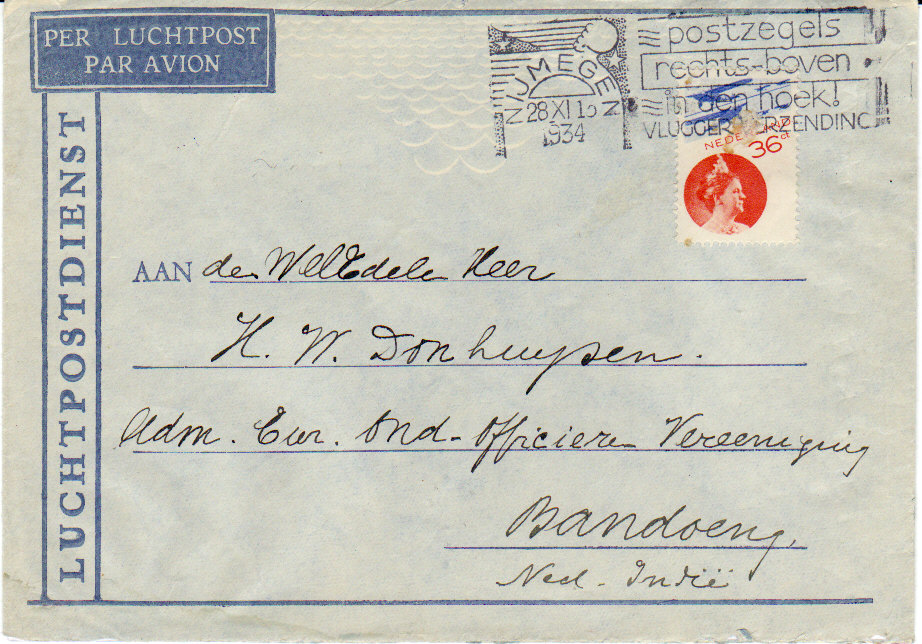 PER LUCHTPOST
PAR AVION
LUCHTPOSTDIENST
NIJMEGEN
28 XI 15
1934
postzegels
rechts-boven
in den hoek!
VLUGGER VERZENDING
NEDERLAND
36 ct
AAN den WelEdelen Heer
H. W. Donhuysen.
Adm. Eur. Ond-Officieren Vereeniging
Bandoeng.
Ned-Indië